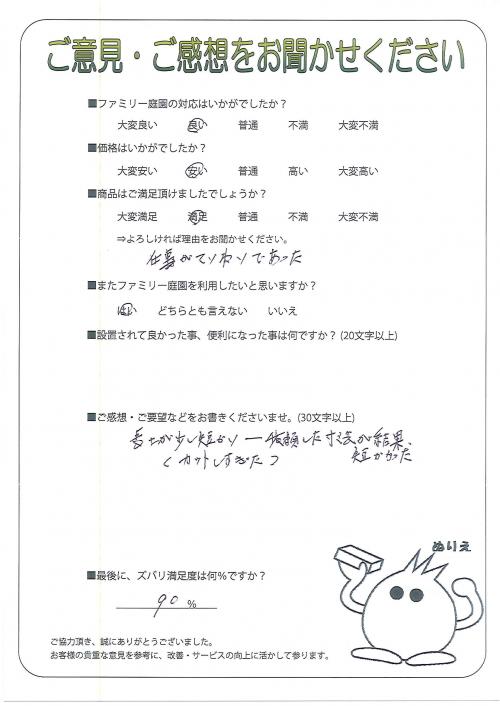 ご意見・ご感想をお聞かせください
■ファミリー庭園の対応はいかがでしたか？
大変良い 良い 普通 不満 大変不満
■価格はいかがでしたか？
大変安い 安い 普通 高い 大変高い
■商品はご満足頂けましたでしょうか？
大変満足 満足 普通 不満 大変不満
⇒よろしければ理由をお聞かせください。
仕事がていねいであった
■またファミリー庭園を利用したいと思いますか？
はい どちらとも言えない いいえ
■設置されて良かった事、便利になった事は何ですか？(20文字以上)
■ご感想・ご要望などをお書きくださいませ。(30文字以上)
が少し短かい ー 依頼した寸法が結果、
(カットしすぎた) 短かかった
ぬりえ
■最後に、ズバリ満足度は何％ですか？
90 %
ご協力頂き、誠にありがとうございました。
お客様の貴重な意見を参考に、改善・サービスの向上に活かして参ります。